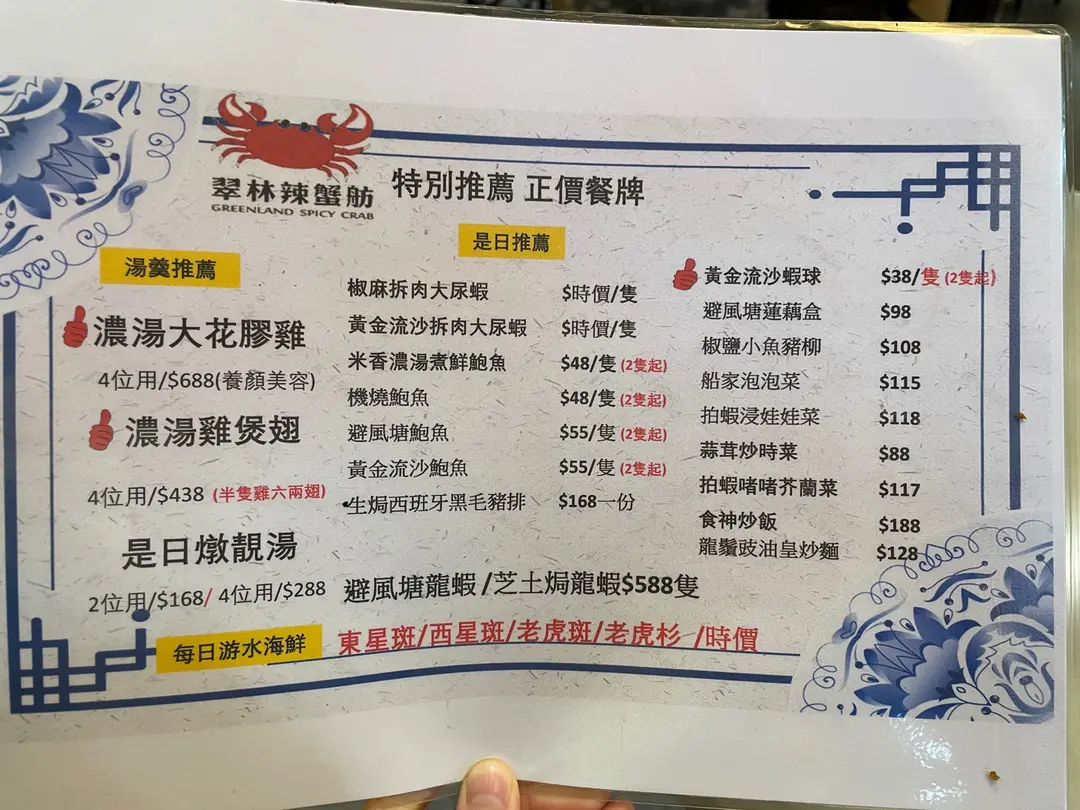 翠林辣蟹舫
GREENLAND SPICY CRAB
特別推薦 正價餐牌
湯羹推薦
濃湯大花膠雞
4位用/$688(養顏美容)
濃湯雞煲翅
4位用/$438 (半隻雞六兩翅)
是日燉靚湯
2位用/$168/ 4位用/$288
是日推薦
椒麻拆肉大尿蝦 $時價/隻
黃金流沙拆肉大尿蝦 $時價/隻
米香濃湯煮鮮鮑魚 $48/隻 (2隻起)
機燒鮑魚 $48/隻 (2隻起)
避風塘鮑魚 $55/隻 (2隻起)
黃金流沙鮑魚 $55/隻 (2隻起)
生焗西班牙黑毛豬排 $168一份
黃金流沙蝦球 $38/隻 (2隻起)
避風塘蓮藕盒 $98
椒鹽小魚豬柳 $108
船家泡泡菜 $115
拍蝦浸娃娃菜 $118
蒜茸炒時菜 $88
拍蝦啫啫芥蘭菜 $117
食神炒飯 $188
龍鬚豉油皇炒麵 $128
避風塘龍蝦/芝士焗龍蝦$588隻
每日游水海鮮
東星斑/西星斑/老虎斑/老虎杉 /時價